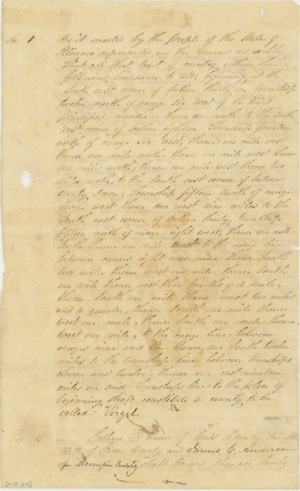 Sec 1 Be it enacted by the People of the State of
Illinois represented in the General Assembly
That all that tract of country within the
following boundaries to wit; beginning at the
South east corner of section thirty, in township
twelve north of range six west of the third
principal meridian, thence north to the South
east corner of section eighteen Township fourteen
north of range six west, thence one mile west
thence one mile north, thence one mile west thence
one mile north, thence one mile west thence two
miles north, to the South east corner of section
Township fifteen north of range
west thence one mile
South east corner of section thirty, township
fifteen north of range eight west, thence one mile
South thence one mile west to the range line
between ranges eight and nine, thence South
two miles thence west one mile, thence South
one mile thence west three fourths of a mile,
thence South one mile, thence west two miles
and a quarter, thence South one mile thence
west one mile, thence South one mile, thence
west one mile, to the range line between
ranges nine and ten, thence South
miles to the township line between townships
eleven and twelve, thence east nineteen
miles on said Township line to the place of
beginning shall constitute a county to be
called
Sec 2 of Green County,
of County and James C. Anderson
of County shall be and they are hereby